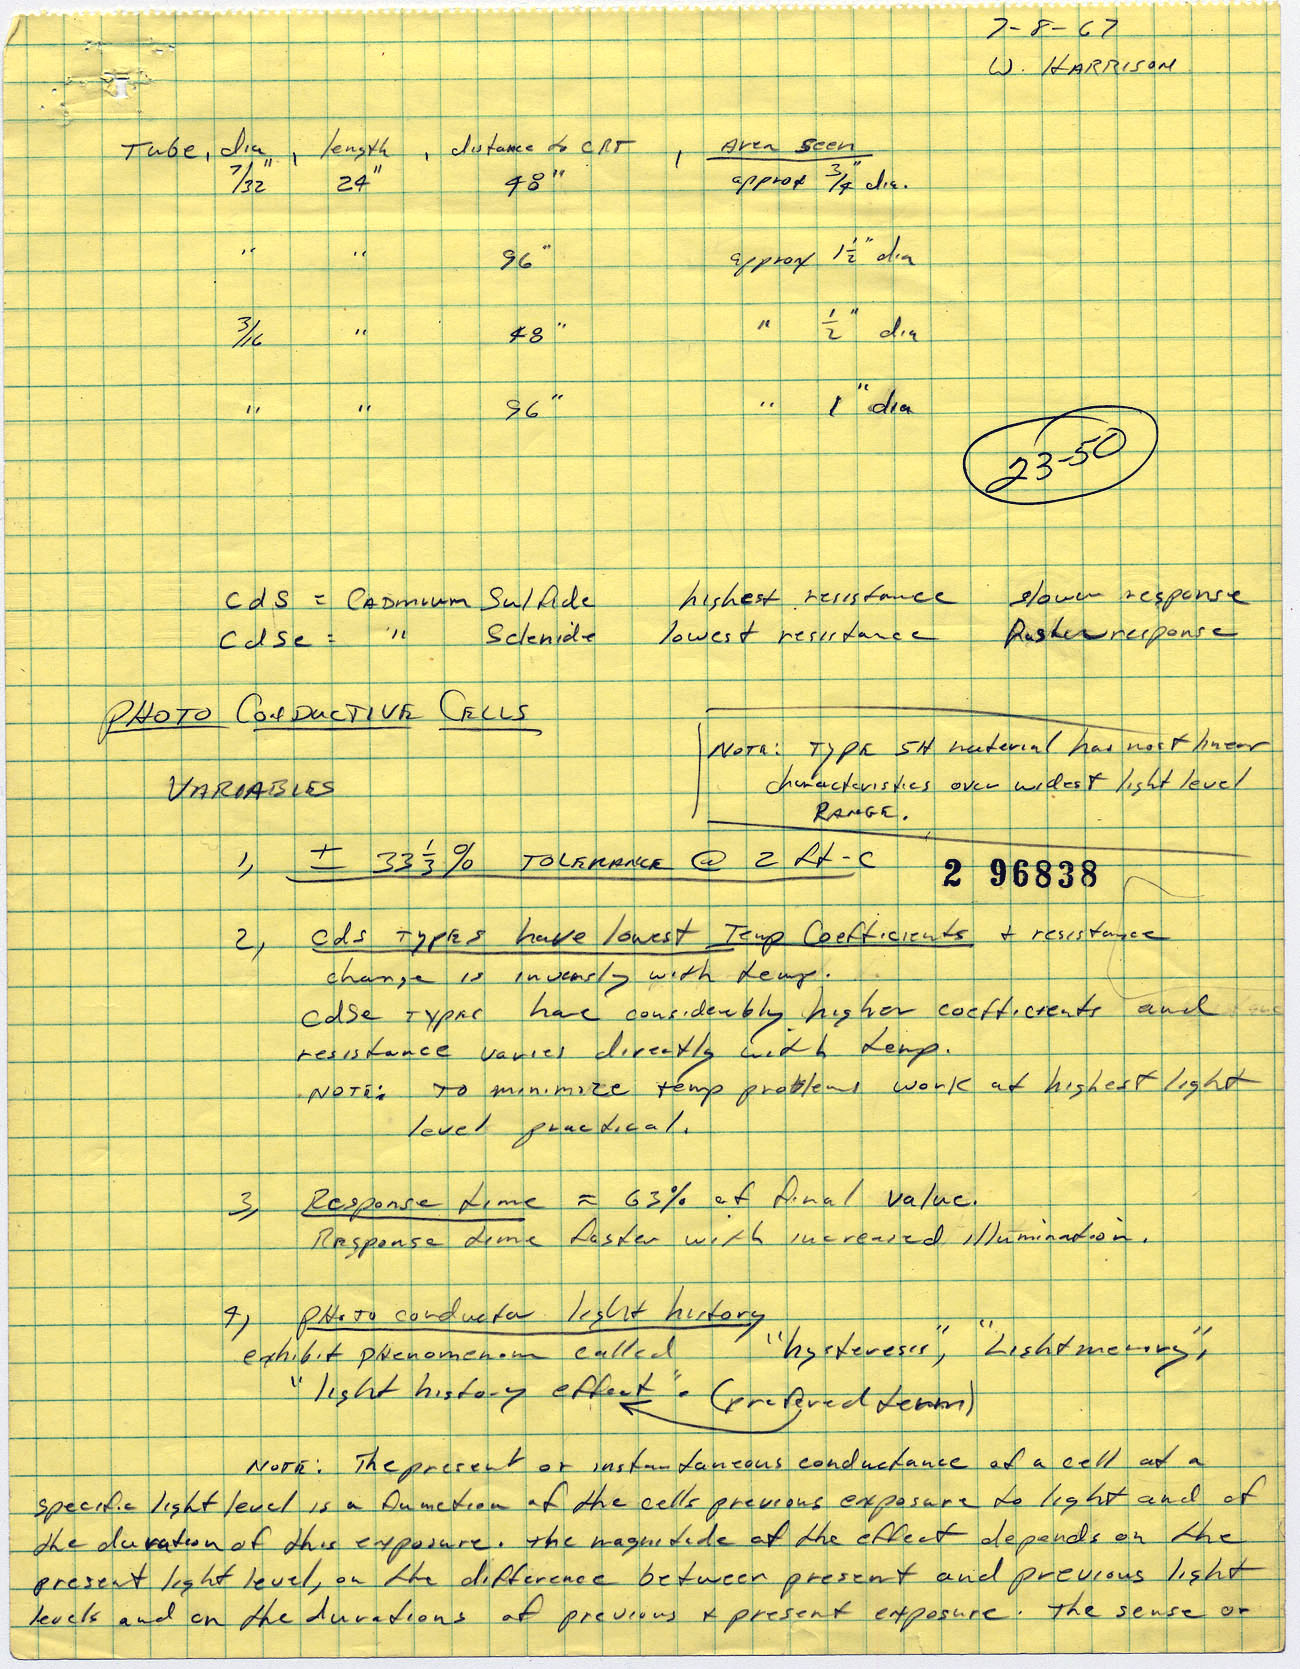 7-8-67
W. HARRISON
Tube, dia, length, distance to CRT, Area seen
7/32" 24" 48" approx 3/4" dia.
" " 96" approx 1 1/2" dia
3/16 " 48" " 1/2" dia
" " 96" " 1" dia
23-50
CdS = CADMIUM Sulfide highest resistance slower response
CdSe = " Selenide lowest resistance faster response
PHOTO CONDUCTIVE CELLS
NOTE: TYPE 5H material has most linear
characteristics over widest light level
RANGE.
VARIABLES
1, ± 33 1/3 % TOLERANCE @ 2 ft-c
2 96838
2, Cds TYPES have lowest Temp Coefficients + resistance
change is inversly with temp.
CdSe TYPES have considerably higher coefficients and
resistance varies directly with temp.
NOTE: TO minimize temp problems work at highest light
level practical.
3, Response time ≈ 63% of final value.
Response time faster with increased illumination.
4, PHOTO conductor light history
exhibit phenomenom called "hysteresis", "Light memory",
"light history effect". (prefered term)
NOTE: The present or instantaneous conductance of a cell at a
specific light level is a function of the cells previous exposure to light and of
the duration of this exposure. The magnitude of the effect depends on the
present light level, on the difference between present and previous light
levels and on the durations of previous + present exposure. The sense or